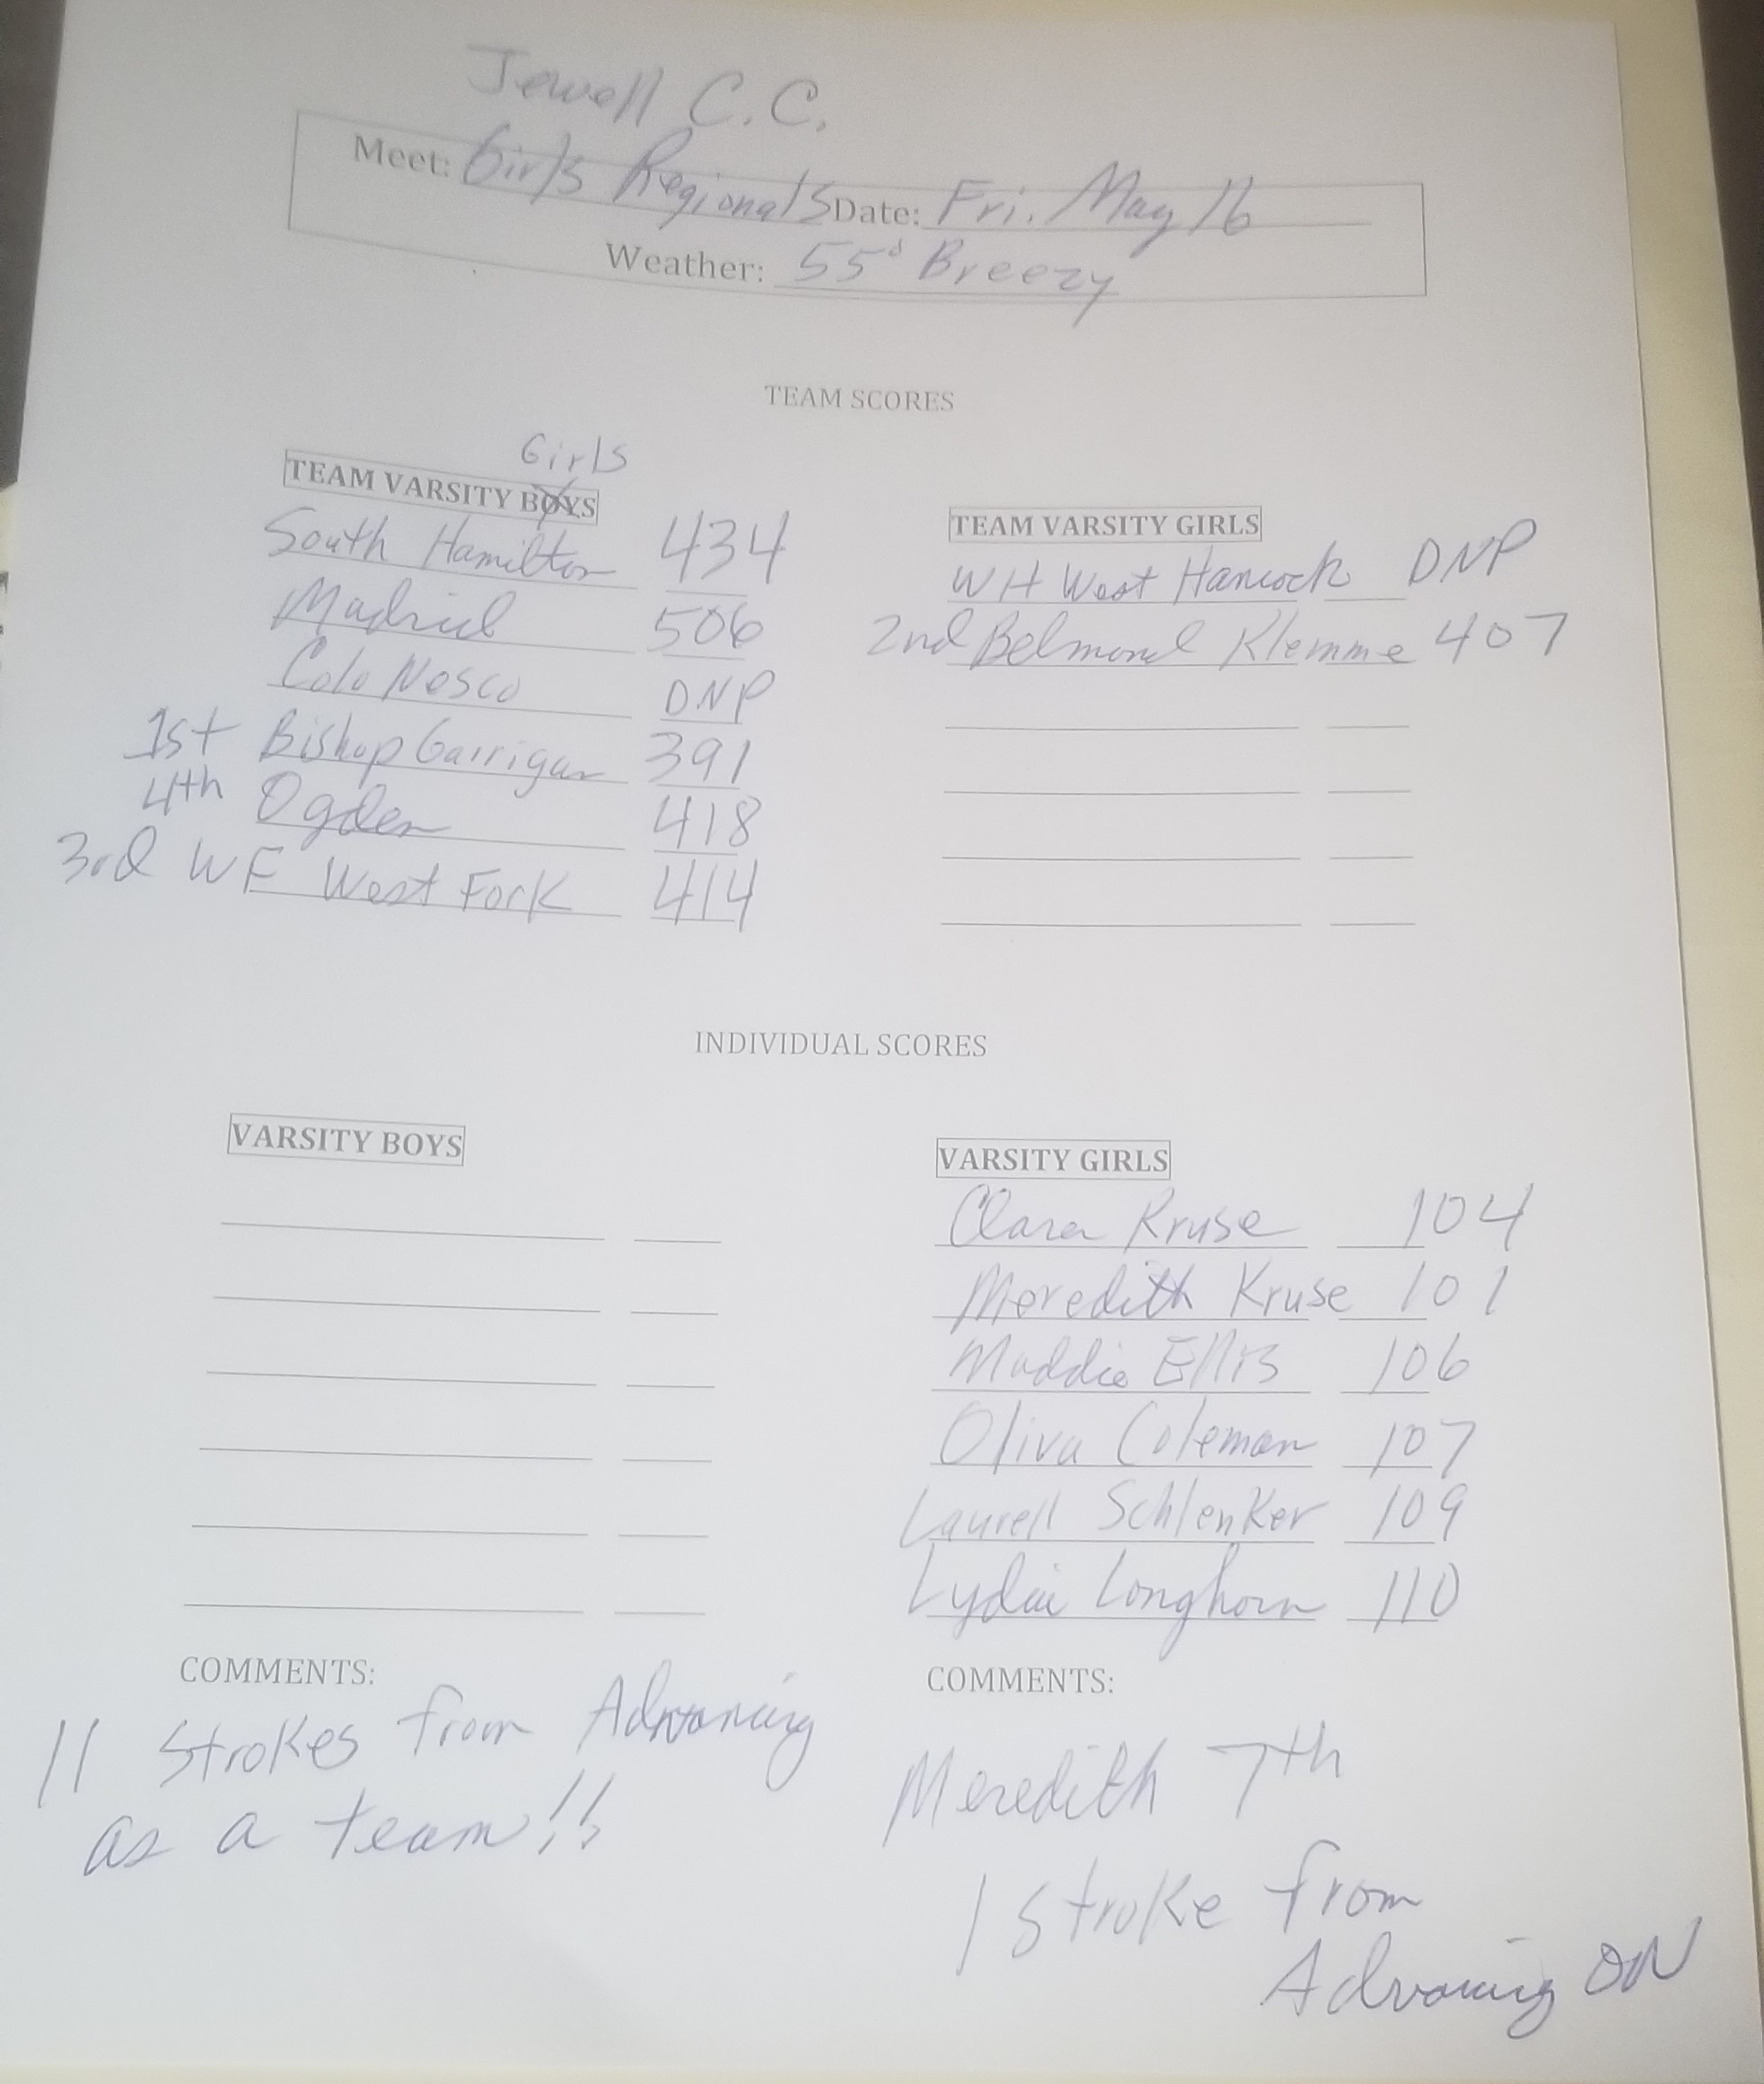 Jewell C.C.
Meet: Girls Regionals Date: Fri. May 16
Weather: 55° Breezy
TEAM SCORES
Girls
TEAM VARSITY BOYS
South Hamilton 434
Madrid 506
Colo Nesco DNP
1st Bishop Garrigan 391
4th Ogden 418
3rd WF West Fork 414
TEAM VARSITY GIRLS
WH West Hancock DNP
2nd Belmond Klemme 407
INDIVIDUAL SCORES
VARSITY BOYS
VARSITY GIRLS
Clara Kruse 104
Meredith Kruse 101
Maddie Ellis 106
Oliva Coleman 107
Laurell Schlenker 109
Lydia Longhorn 110
COMMENTS:
11 Strokes from Advancing
as a team!!
COMMENTS:
Meredith 7th
1 Stroke from
Advancing ON